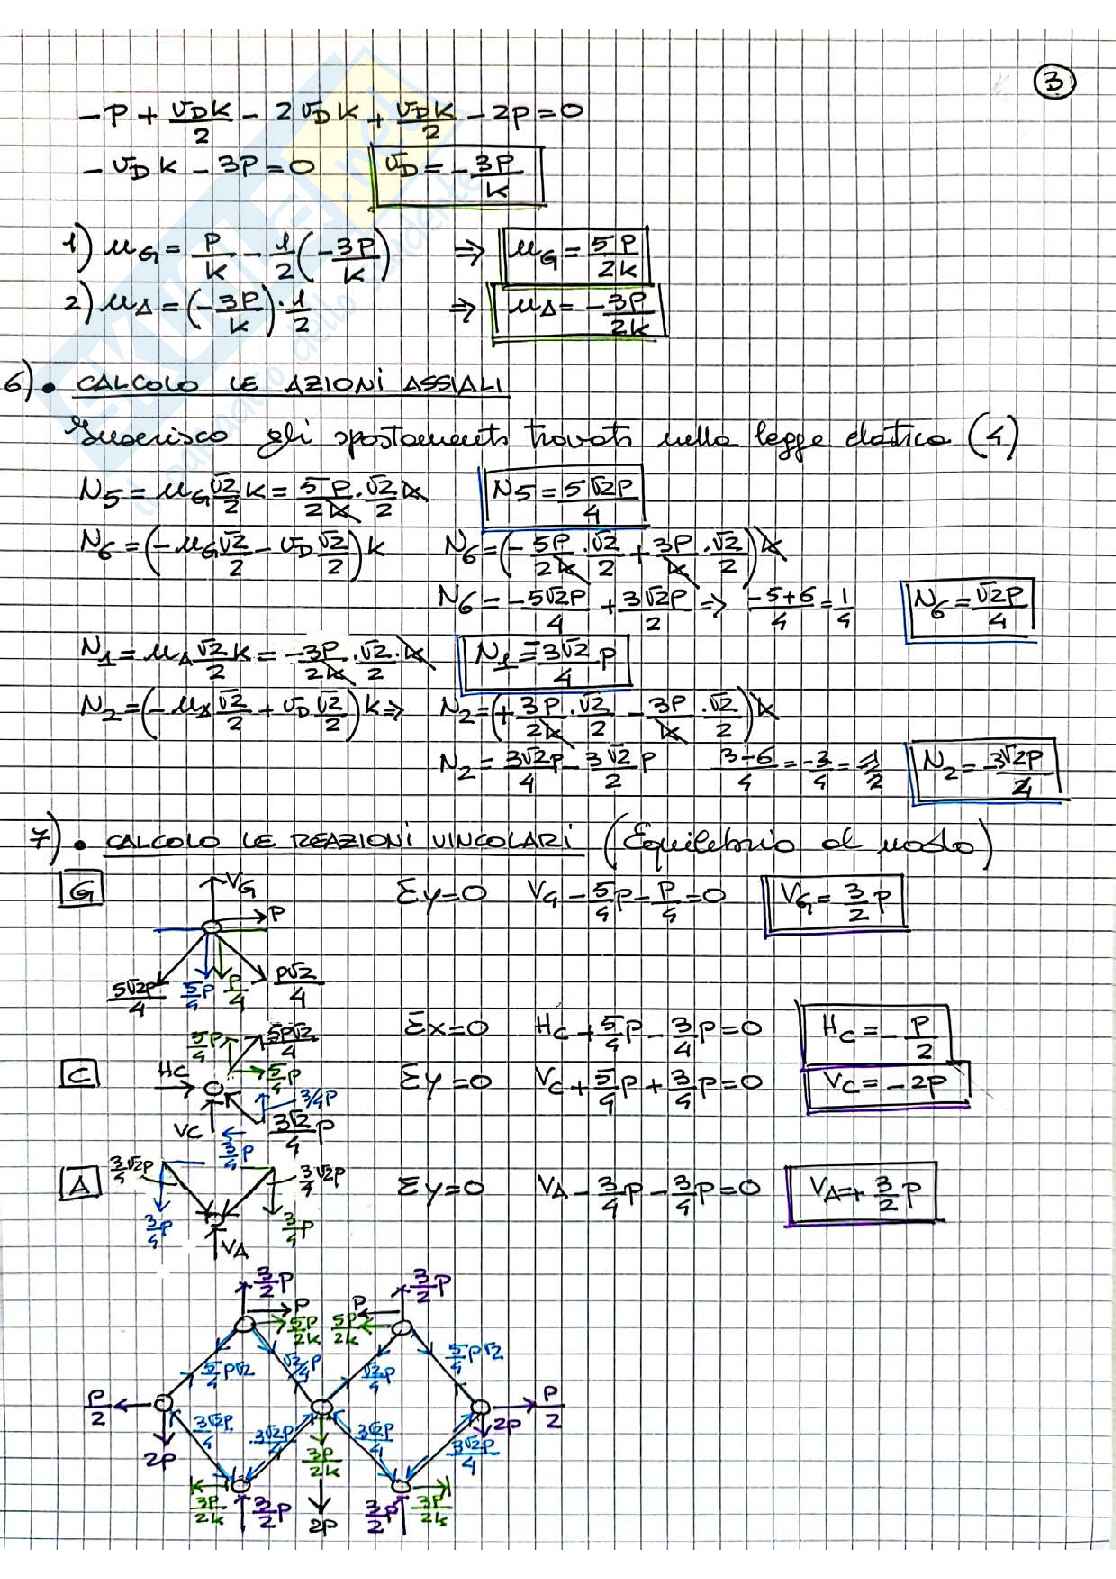 3
-P + vDk/2 - 2vDk + vDk/2 - 2P = 0
-vDk - 3P = 0   vD = -3P/k
1) uG = P/k - 1/2(-3P/k) ⇒ uG = 5P/2k
2) uA = (-3P/k)·1/2 ⇒ uA = -3P/2k
6) • CALCOLO LE AZIONI ASSIALI
Inserisco gli spostamenti trovati nella legge elastica (4)
N5 = uG √2/2 k = 5P/2k · √2/2 k   N5 = 5√2P/4
N6 = (-uG √2/2 - vD √2/2)k   N6 = (-5P/2k · √2/2 + 3P/k · √2/2)k
N6 = -5√2P/4 + 3√2P/2 ⇒ -5+6/4 = 1/4   N6 = √2P/4
N1 = uA √2/2 k = -3P/2k · √2/2 · k   N1 = -3√2/4 P
N2 = (-uA √2/2 + vD √2/2)k ⇒ N2 = (+3P/2k · √2/2 - 3P/k · √2/2)k
N2 = 3√2P/4 - 3√2/2 P   3-6/4 = -3/4   N2 = -3√2P/4
7) • CALCOLO LE REAZIONI VINCOLARI (Equilibrio al nodo)
G   VG   P   Σy=0   VG - 5/4P - P/4 = 0   VG = 3/2 P
5√2P/4   5/4P   P/4   P√2/4
5P/4   5P√2/4   Σx=0   HC + 5/4P - 3/4P = 0   HC = -P/2
C   HC   5/4P   Σy=0   VC + 5/4P + 3/4P = 0   VC = -2P
VC   3/4P   3/4P   3√2/4 P
A   3/4√2P   3√2P/4   Σy=0   VA - 3/4P - 3/4P = 0   VA = + 3/2 P
3/4P   3/4P
VA
3/2P   3/2P
P   P
5P/2k   5P/2k
5/4P√2   √2/4P   √2P/4   5/4P√2
P/2   P/2
2P   3√2P/4   3√2P/4   3√2P/4   3√2P/4   2P
3P/2k
3P/2k   3/2P   2P   3/2P   3P/2k